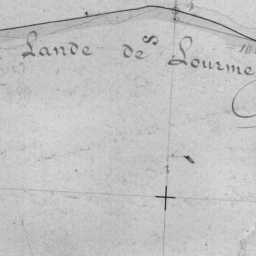 Lande des Lourme